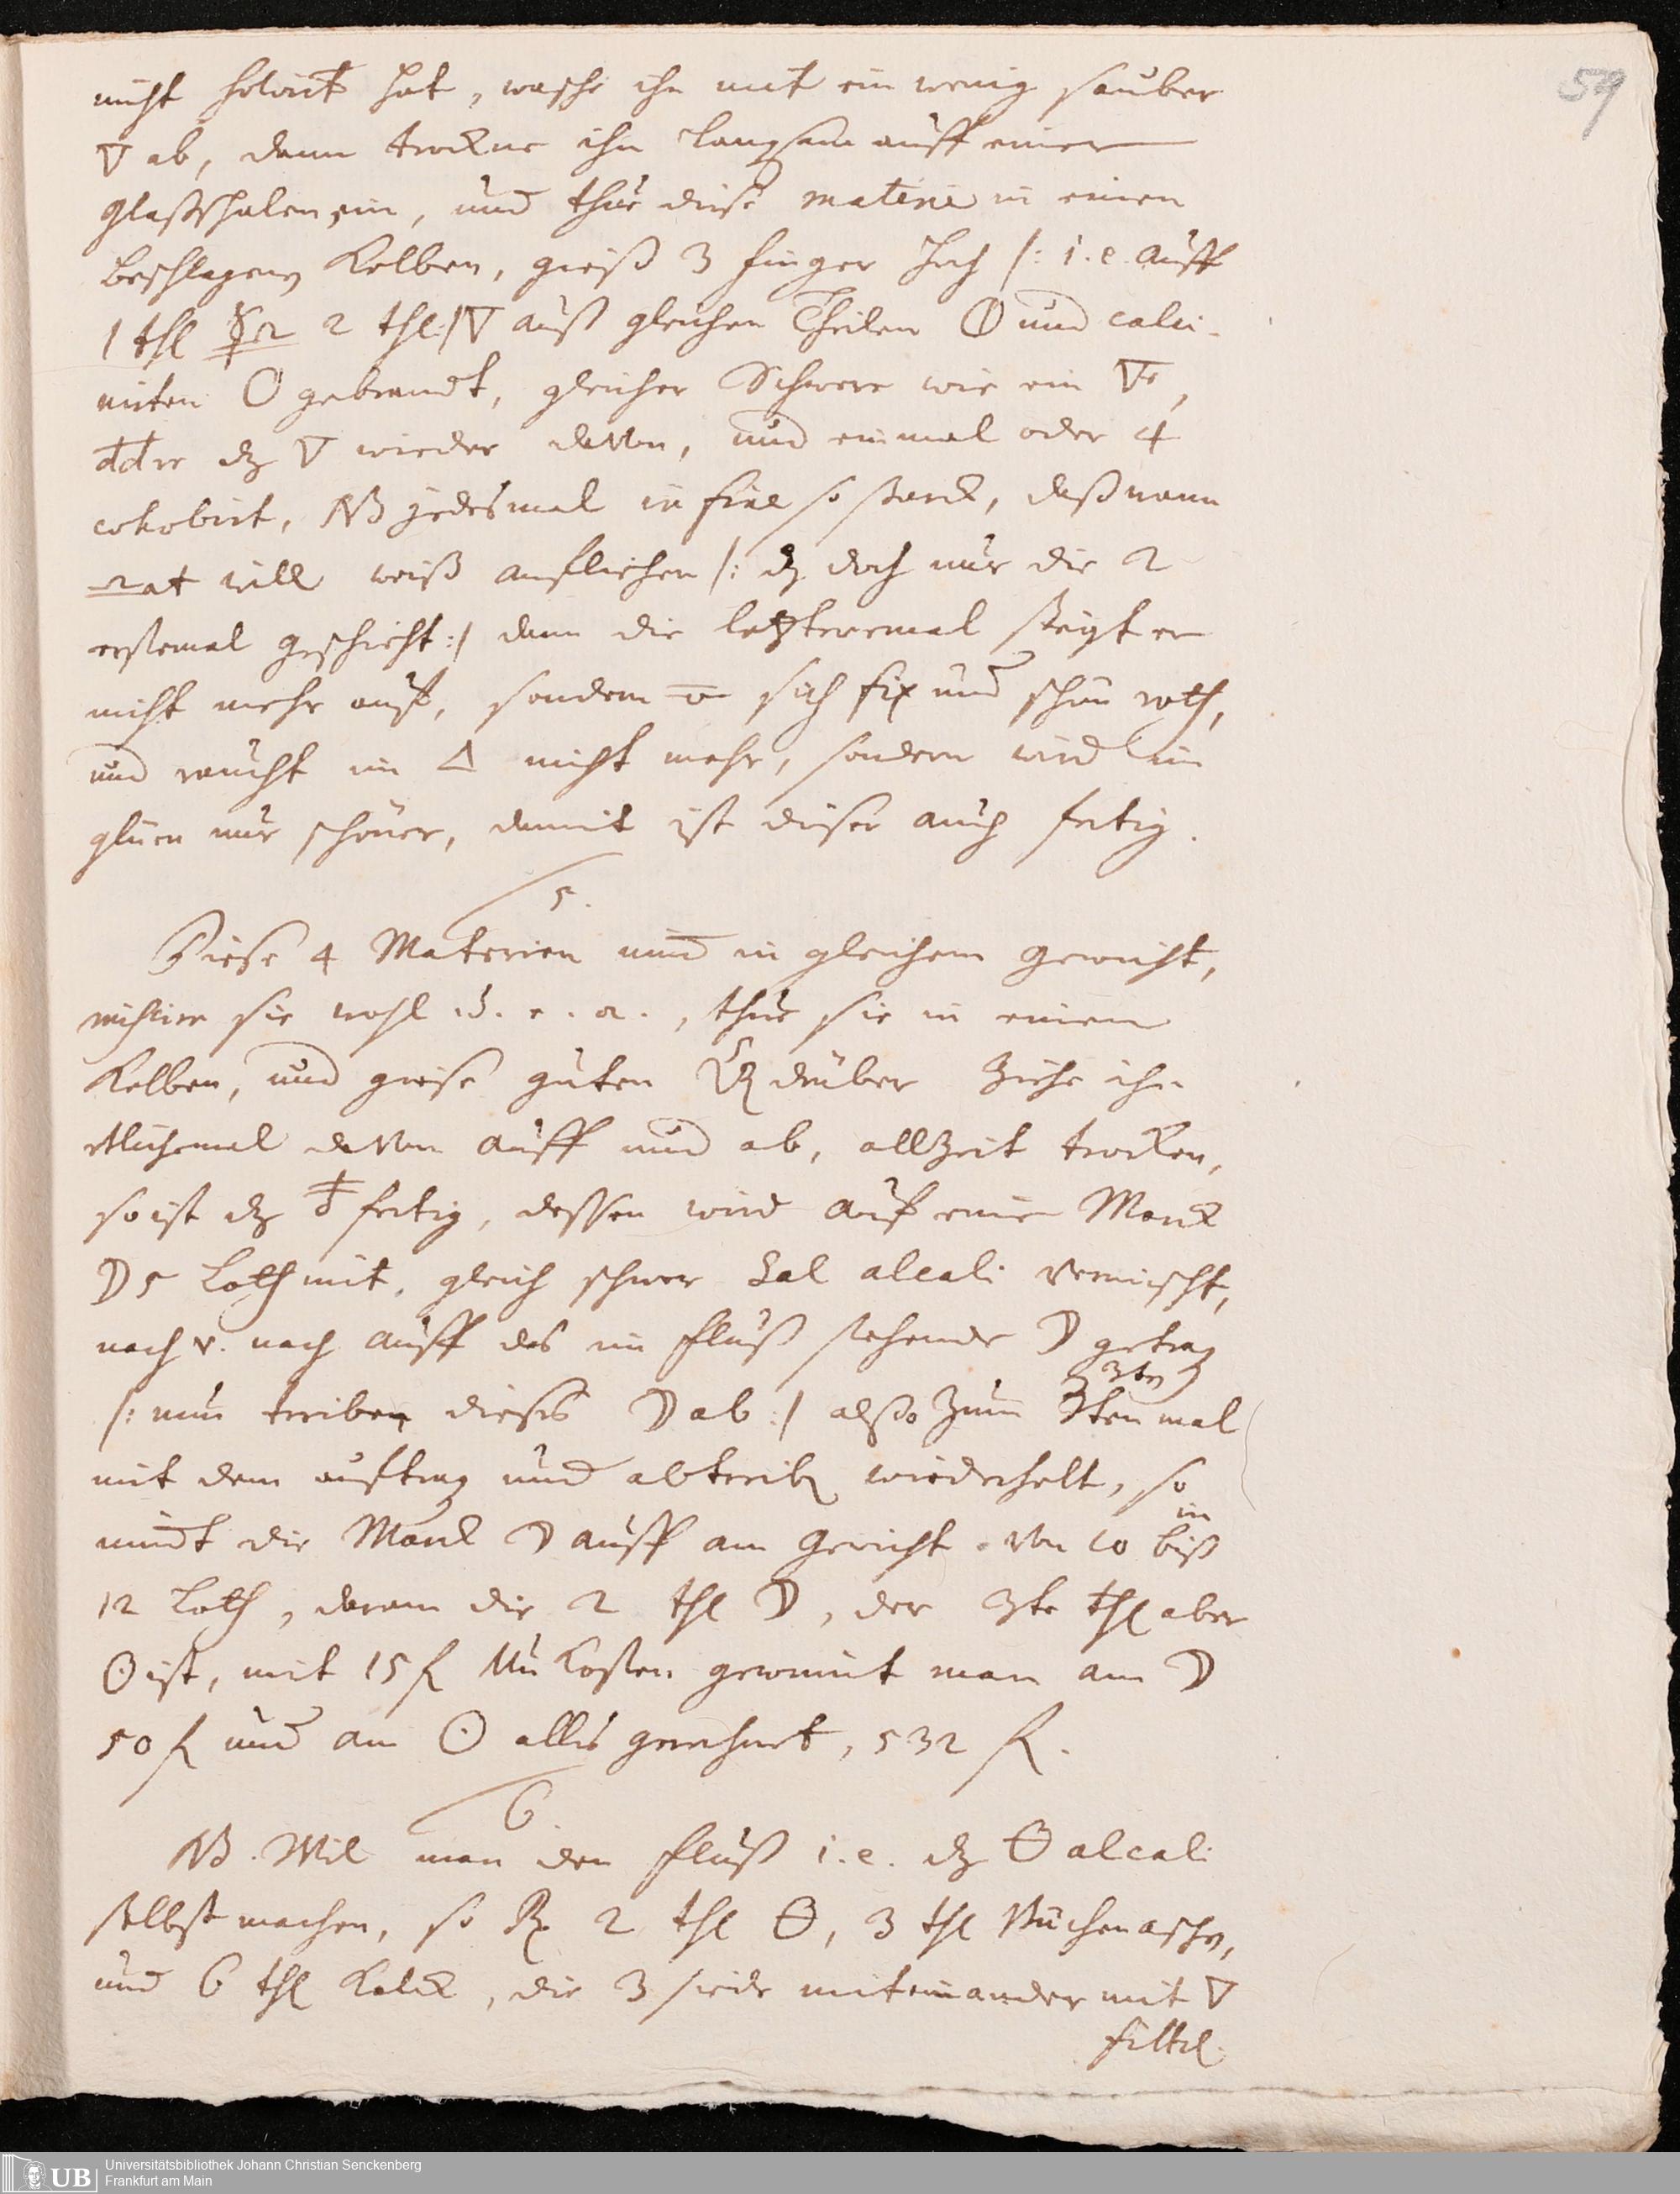 59
nicht solvirt hat, wasche ihn mit ein wenig sauber
🜄 ab, dann trockne ihn langsam auff einer
glaßschalen ein, und thue diese materie in einen
beschlagenen Kolben, gieß 3 finger hoch /: i. e. auff
1 thl 2 thl :/ 🜄 auß gleichen Theilen 🜕 und calci-
nirten gebrandt, gleicher Schwere wie ein 🜄,
dz 🜄 wieder davon, und einmal oder 4
cohobirt, NB jedesmal in fine so starck, daß wann
will weiß aufliehen /: dz doch nur die 2
erstemal geschicht :/ dann die letzteremal steigt er
nicht mehr auf, sondern sich fix und schön roth,
und raucht im 🜂 nicht mehr, sondern wird im
glüen nur schöner, damit ist dieser auch fertig.
5.
Diese 4 Materien nimb in gleichem gewicht,
mischire sie wohl u. e. a., thue sie in einen
Kolben, und giese guten drüber ziehe ihn
etlichemal davon auff und ab, allzeit trocken,
so ist dz fertig, dessen wird auf eine Marck
☽ 5 Loth mit, gleich schwer Sal alcali vermischt,
nach u. nach auff das im fluß stehende ☽ getrag
/: nun treiben dieses ☽ ab :/ also zum 3ten mal
3ten
mit dem auftrag und abtreib wiederholt, so
nimbt die Marck ☽ auff am gewicht von 10 biß
in
12 Loth, daran die 2 thl ☽, der 3te thl aber
☉ ist, mit 15 f Unkosten gewinnt man am ☽
50 f und am ☉ alles gerechnet, 532 f.
6.
NB. Wil man den fluß i. e. dz 🜔 alcali
selbst machen, so ℞ 2 thl 🜔, 3 thl Büchenaschen,
und 6 thl Kalck, die 3 siede miteinander mit 🜄
filtrl.
Universitätsbibliothek Johann Christian Senckenberg
Frankfurt am Main
UB